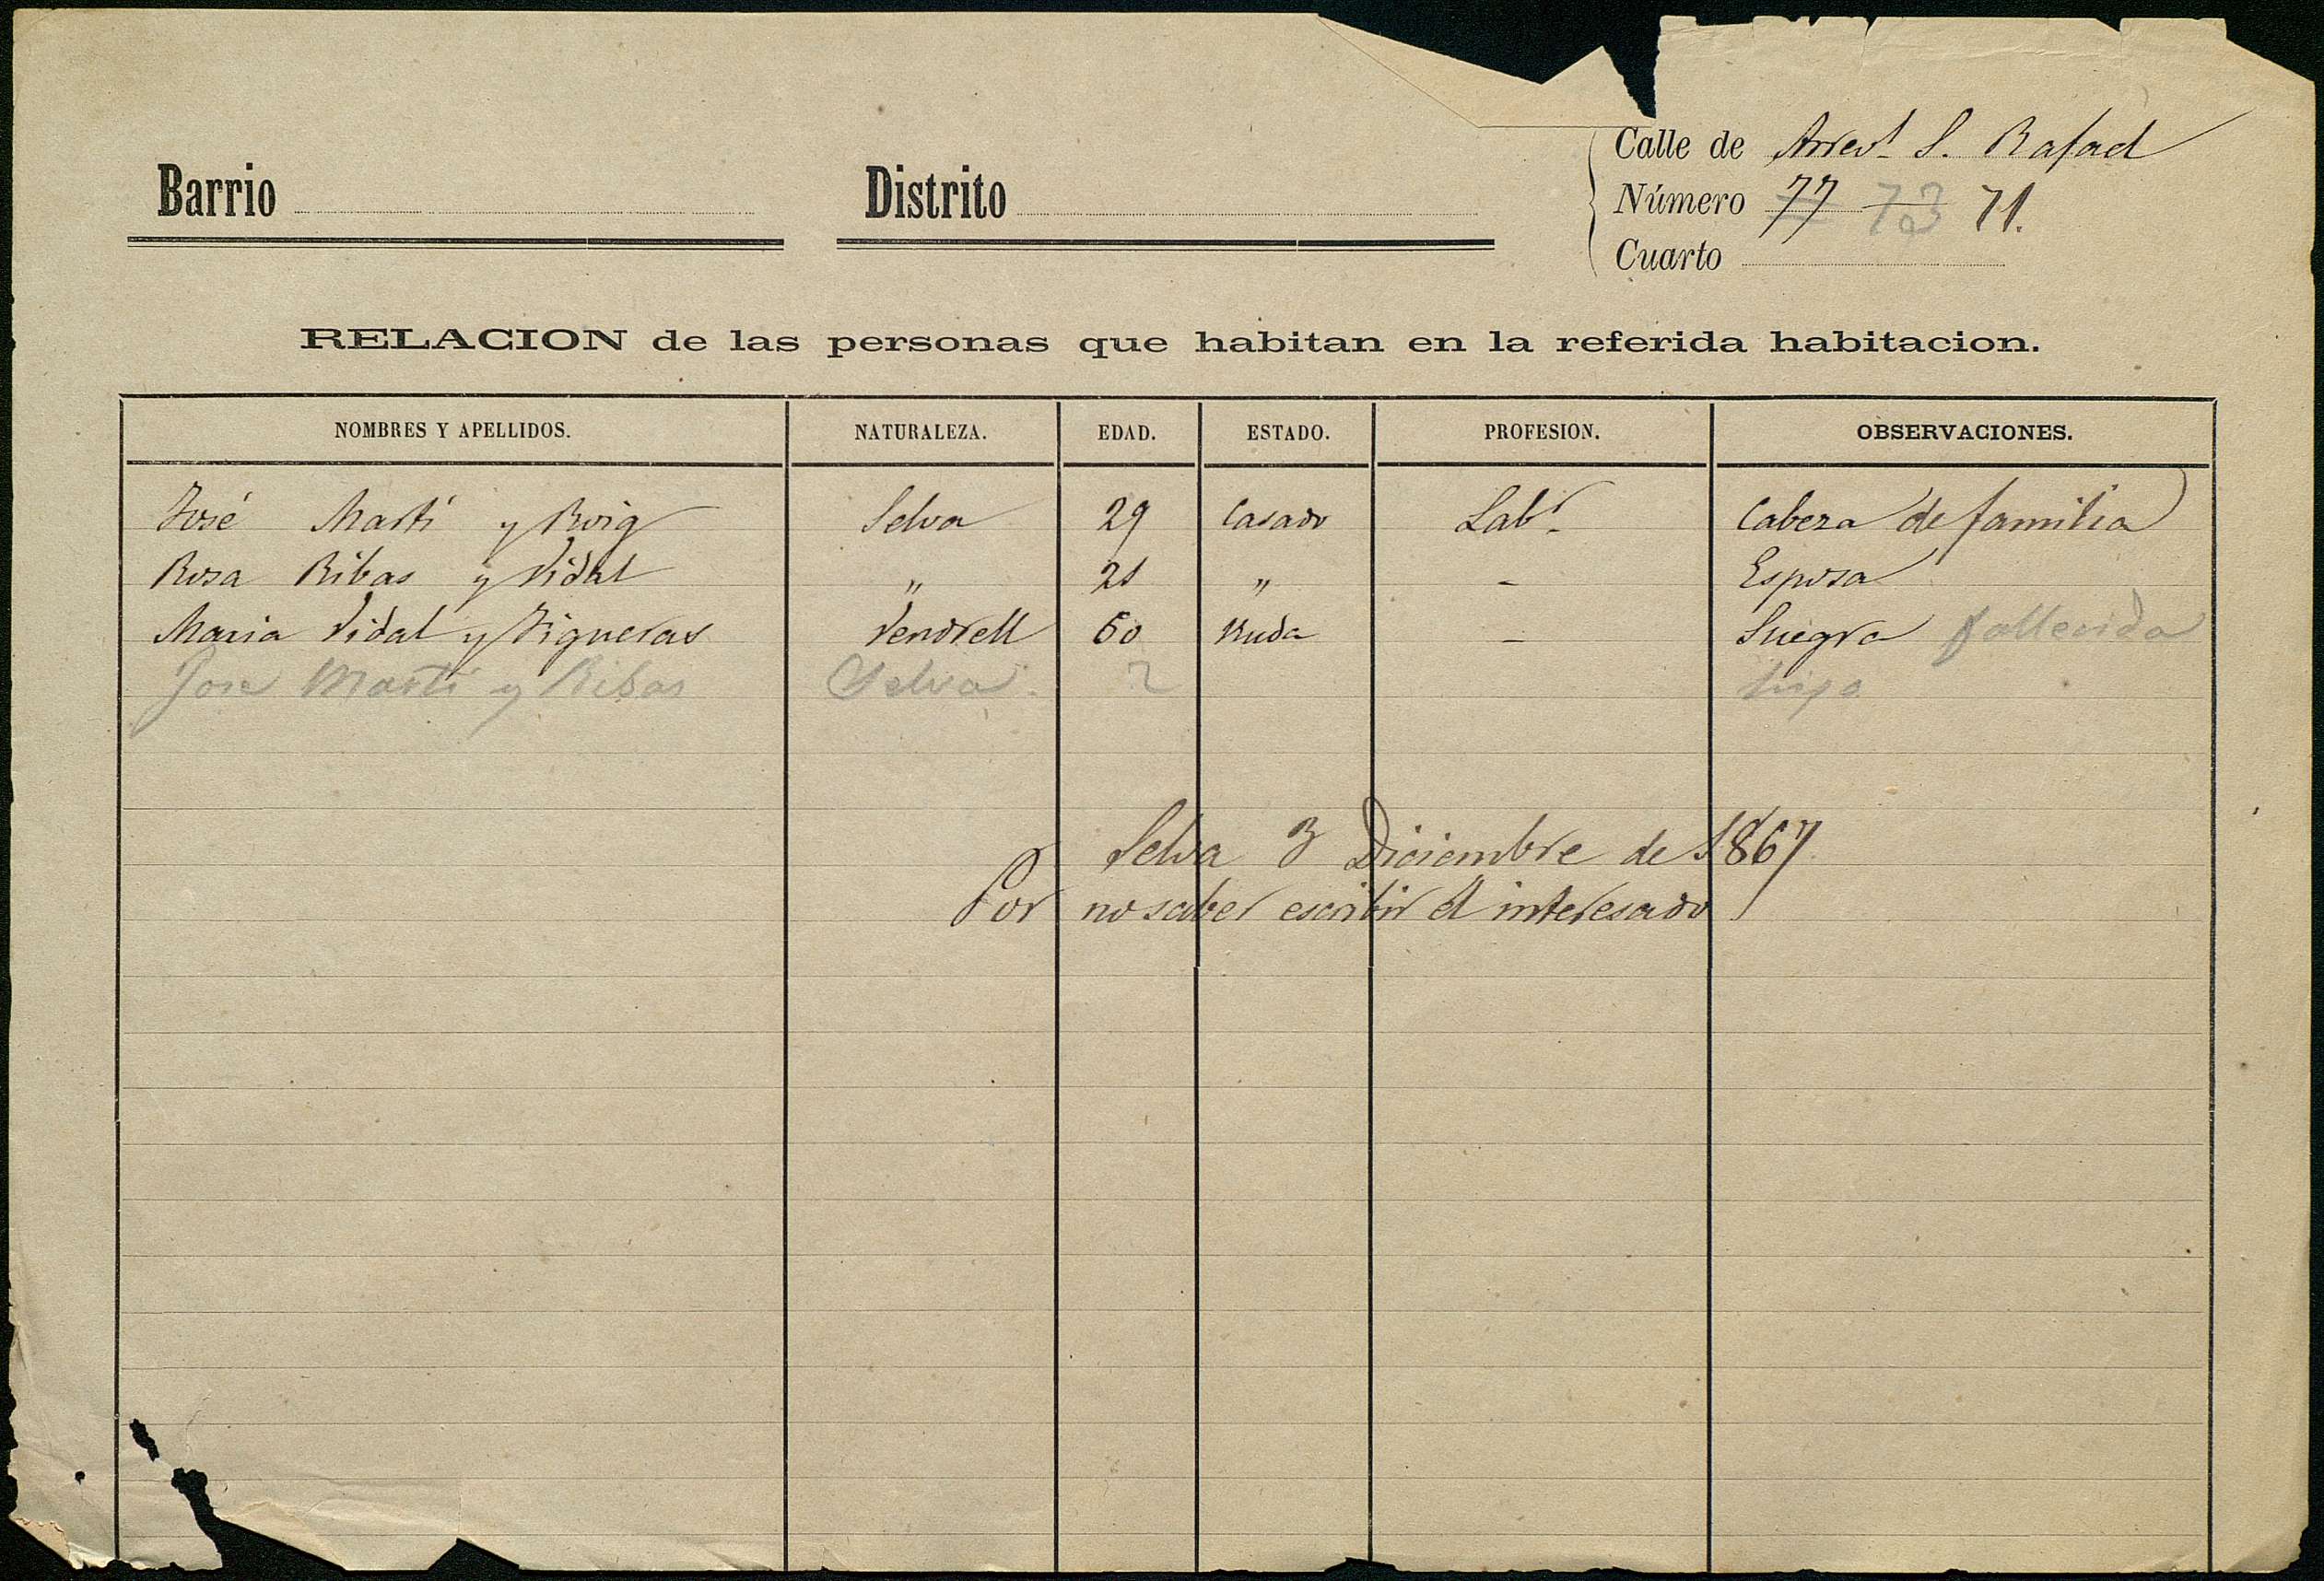 Calle de Arrev.l S. Rafael
Barrio
Distrito
Número 77 73 71.
Cuarto
RELACION de las personas que habitan en la referida habitacion.
NOMBRES Y APELLIDOS. NATURALEZA. EDAD. ESTADO. PROFESION. OBSERVACIONES.
José Martí y Roig Selva 29 Casado Lab.r Cabeza de familia
Rosa Ribas y Vidal " 21 " - Esposa
Maria Vidal y Figueras Vendrell 60 Viuda - Suegra fallecida
Jose Martí y Ribas Selva. 2 hijo
Selva 3 Diciembre de 1867.
Por no saber escribir el interesado